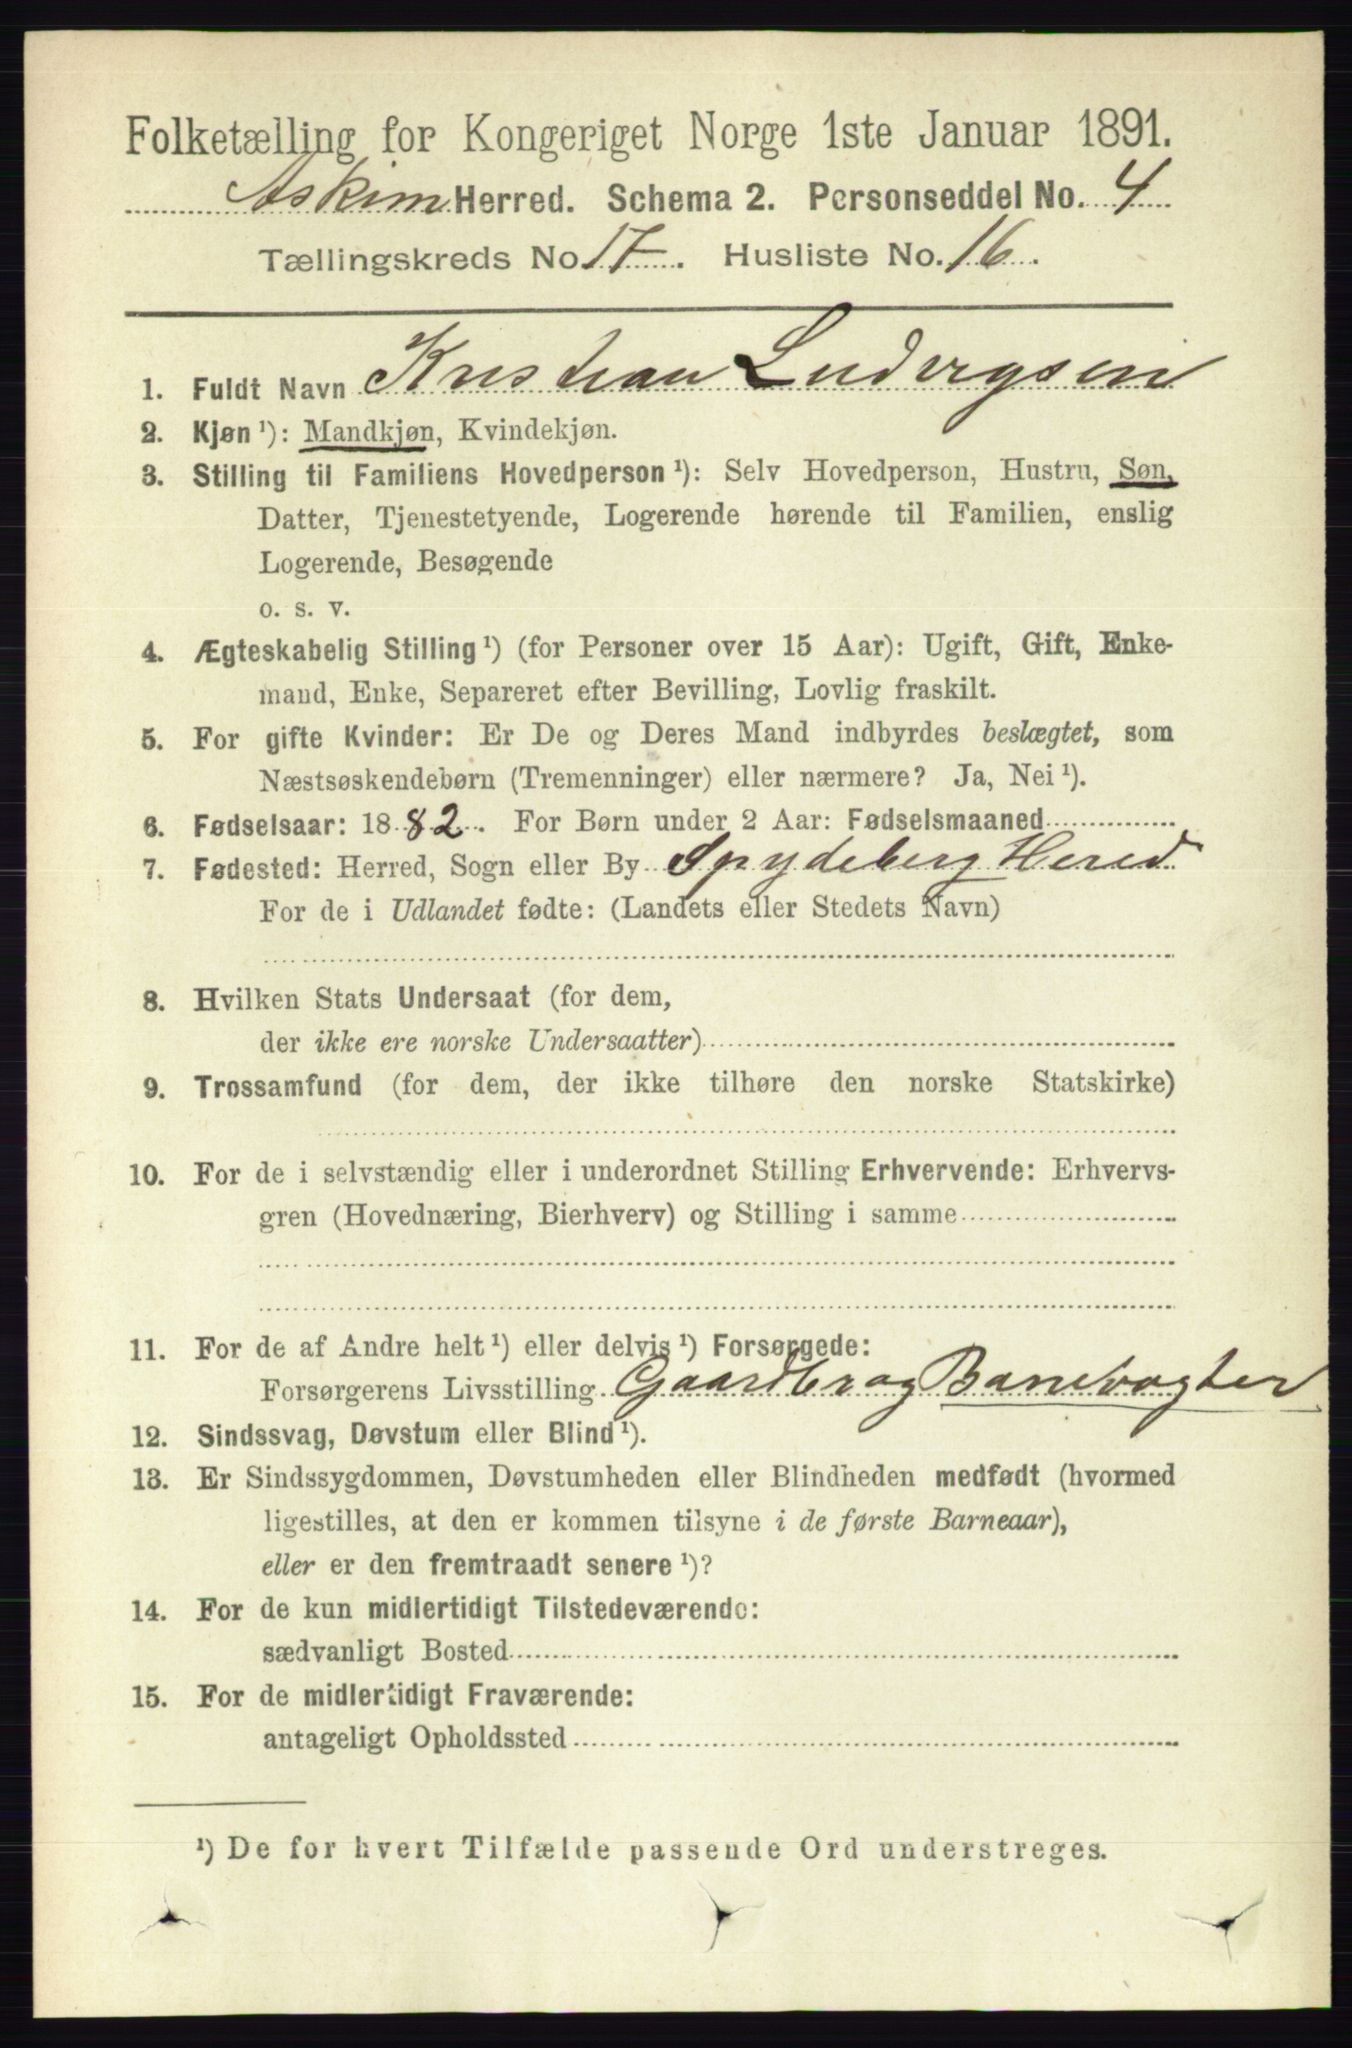 Folketælling for Kongeriget Norge 1ste Januar 1891.
Askim Herred. Schema 2. Personseddel No. 4
Tællingskreds No 17. Husliste No. 16.
1. Fuldt Navn Kristian Ludvigsen
2. Kjøn ¹): Mandkjøn, Kvindekjøn.
3. Stilling til Familiens Hovedperson ¹): Selv Hovedperson, Hustru, Søn,
Datter, Tjenestetyende, Logerende hørende til Familien, enslig
Logerende, Besøgende
o. s. v.
4. Ægteskabelig Stilling ¹) (for Personer over 15 Aar): Ugift, Gift, Enke-
mand, Enke, Separeret efter Bevilling, Lovlig fraskilt.
5. For gifte Kvinder: Er De og Deres Mand indbyrdes beslægtet, som
Næstsøskendebørn (Tremenninger) eller nærmere? Ja, Nei ¹).
6. Fødselsaar: 1882. For Børn under 2 Aar: Fødselsmaaned
7. Fødested: Herred, Sogn eller By Spydeberg Hered
For de i Udlandet fødte: (Landets eller Stedets Navn)
8. Hvilken Stats Undersaat (for dem,
der ikke ere norske Undersaatter)
9. Trossamfund (for dem, der ikke tilhøre den norske Statskirke)
10. For de i selvstændig eller i underordnet Stilling Erhvervende: Erhvervs-
gren (Hovednæring, Bierhverv) og Stilling i samme
11. For de af Andre helt ¹) eller delvis ¹) Forsørgede:
Forsørgerens Livsstilling Gaardbr og Banevogter
12. Sindssvag, Døvstum eller Blind ¹).
13. Er Sindssygdommen, Døvstumheden eller Blindheden medfødt (hvormed
ligestilles, at den er kommen tilsyne i de første Barneaar),
eller er den fremtraadt senere ¹)?
14. For de kun midlertidigt Tilstedeværende:
sædvanligt Bosted
15. For de midlertidigt Fraværende:
antageligt Opholdssted
¹) De for hvert Tilfælde passende Ord understreges.